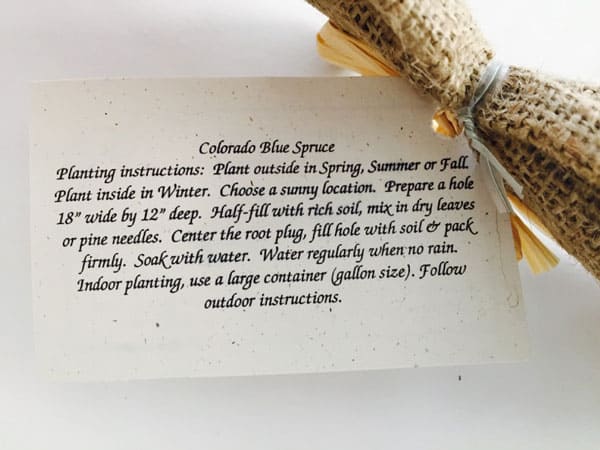 Colorado Blue Spruce
Planting instructions: Plant outside in Spring, Summer or Fall.
Plant inside in Winter. Choose a sunny location. Prepare a hole
18" wide by 12" deep. Half-fill with rich soil, mix in dry leaves
or pine needles. Center the root plug, fill hole with soil & pack
firmly. Soak with water. Water regularly when no rain.
Indoor planting, use a large container (gallon size). Follow
outdoor instructions.